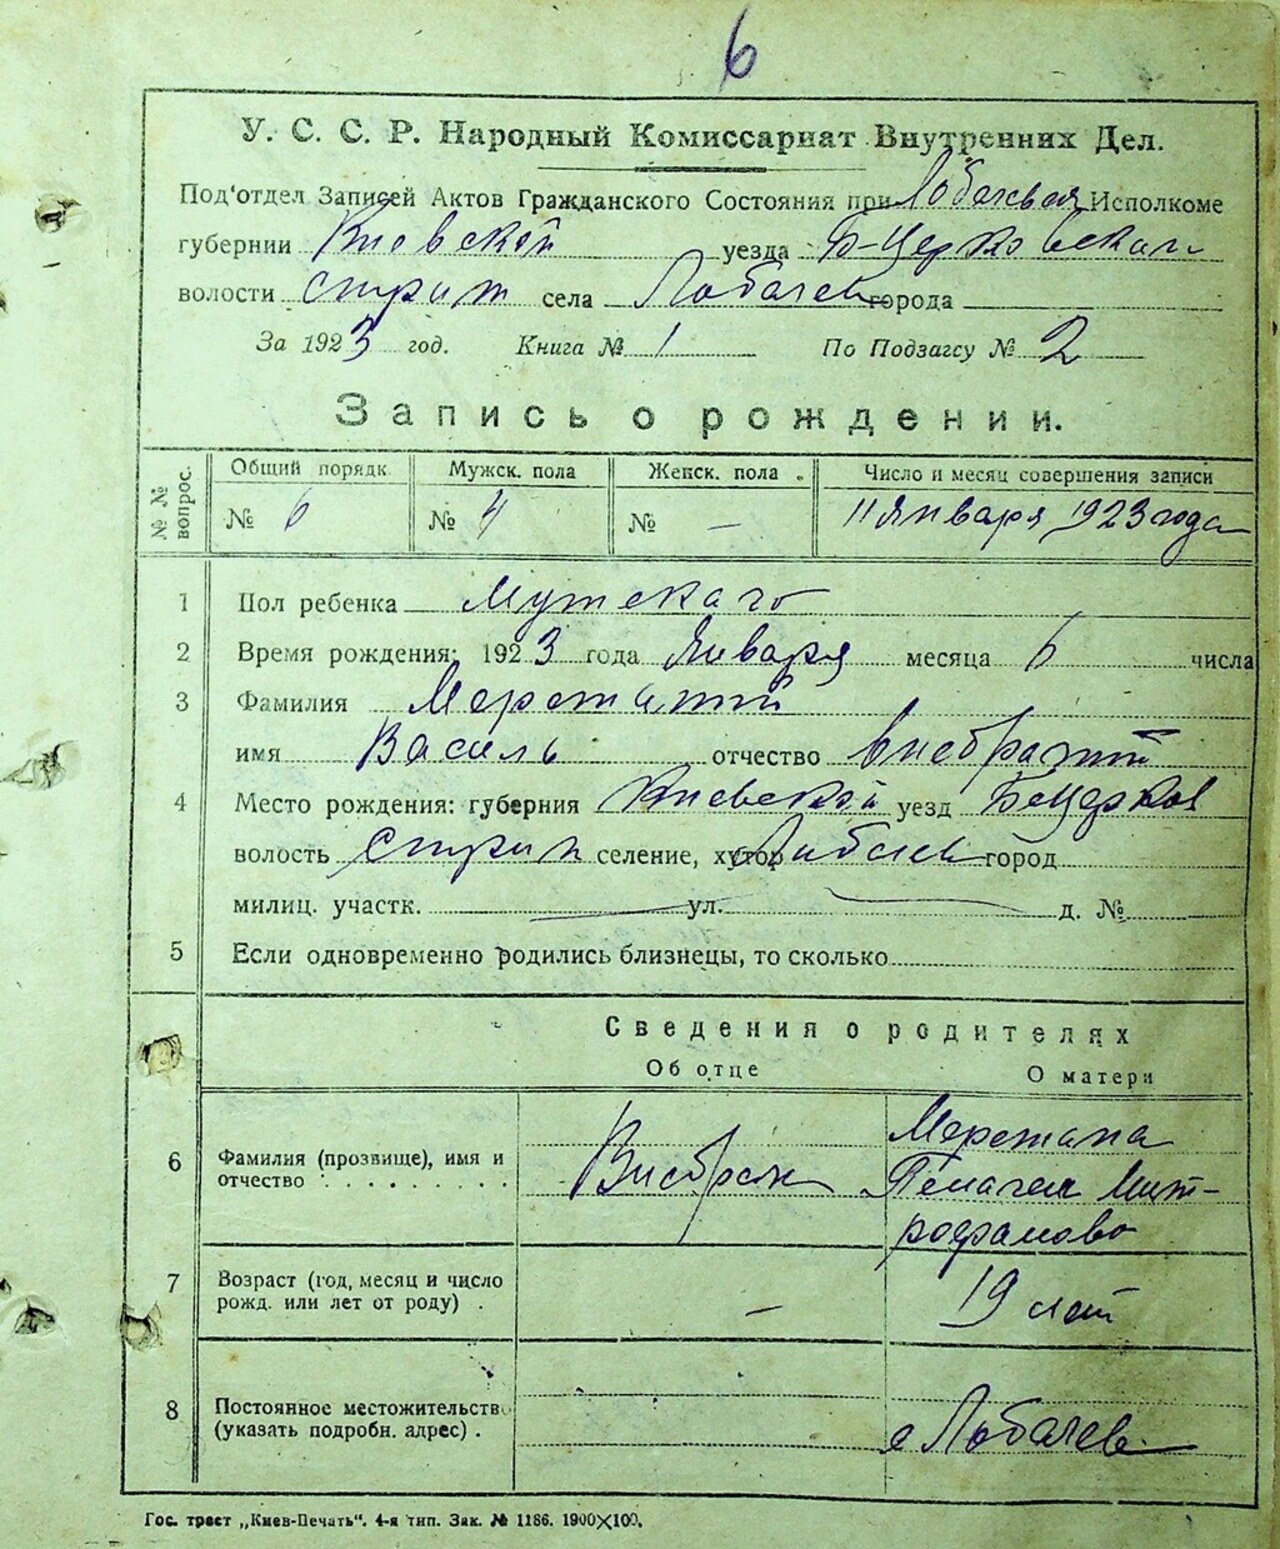 6
У. С. С. Р. Народный Комиссариат Внутренних Дел.
Под'отдел Записей Актов Гражданского Состояния при Исполкоме
губернии Киевской уезда Б-Церковская
волости села Лобачев города
За 1923 год. Книга № 1 По Подзагсу № 2
Запись о рождении.
№№ вопрос. Общий порядк. Мужск. пола Женск. пола. Число и месяц совершения записи
№ 6 № 4 № – 11 января 1923 года
1 Пол ребенка Мужскаго
2 Время рождения: 1923 года Января месяца 6 числа
3 Фамилия
имя Василь отчество внебрачний
4 Место рождения: губерния Киевской уезд БеЦерков
волость селение, хутор город
милиц. участк. ул. д. №
5 Если одновременно родились близнецы, то сколько
Сведения о родителях
Об отце О матери
6 Фамилия (прозвище), имя и отчество Внебрачн Мережана
Митрофаново
7 Возраст (год, месяц и число рожд. или лет от роду) . – 19 лет
8 Постоянное местожительство (указать подробн. адрес) . с Лобачев
Гос. трест „Киев-Печать“. 4-я тип. Зак. № 1186. 1900×100.